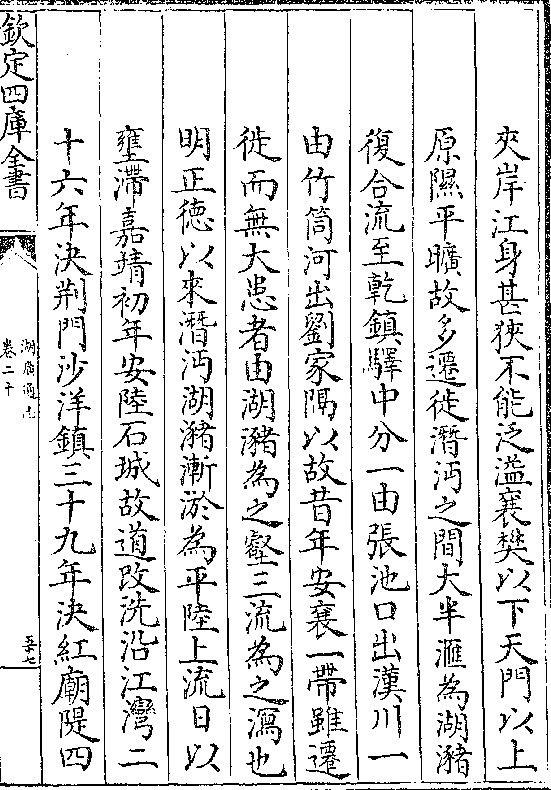 夾岸江身甚狹不能泛溢襄樊以下天門以上
原隰平曠故多遷徙潛沔之間大半滙為湖瀦
復合流至乾鎮驛中分一由張池口出漢川一
由竹筒河出劉家隔以故昔年安襄一帶雖遷
徙而無大患者由湖瀦為之壑三流為之瀉也
明正德以來潛沔湖瀦漸淤為平陸上流日以
壅滯嘉靖初年安陸石城故道改洗沿江灣二
十六年決荆門沙洋鎮三十九年決紅廟隄四
欽定四庫全書
湖廣通志
卷二十
五十七